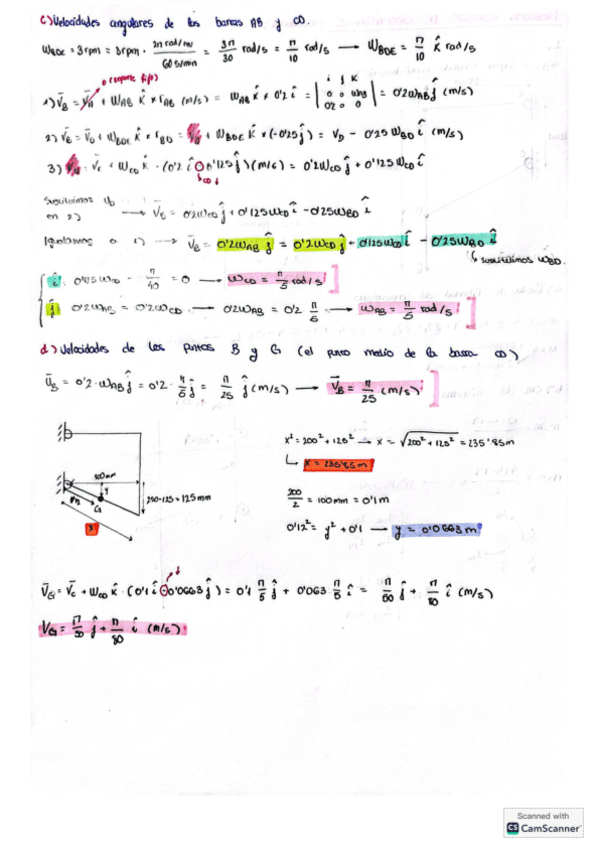 c) Velocidades angulares de las barras AB y CD.
ω_BDE = 3 rpm = 3 rpm · 2π rad/rev / 60 s/min = 3π/30 rad/s = π/10 rad/s → ω_BDE = π/10 k̂ rad/s
o soporte fijo
1) v̄_B = v̄_A + ω_AB k̂ × r_AB (m/s) = ω_AB k̂ × 0'2 î = | i j k / 0 0 ω_AB / 0'2 0 0 | = 0'2ω_AB ĵ (m/s)
2) v̄_B = v̄_D + ω_BDE k̂ × r_BD = v̄_D + ω_BDE k̂ × (-0'25 ĵ) = v_D - 0'25 ω_BD î (m/s)
3) v̄_D = v̄_C + ω_CD k̂ · (0'2 î - 0'125 ĵ) (m/s) = 0'2ω_CD ĵ + 0'125ω_CD î
Sustituimos v_D
en 2) → v̄_B = 0'2ω_CD ĵ + 0'125ω_CD î - 0'25ω_BD î
Igualamos a 1) → v̄_B = 0'2ω_AB ĵ = 0'2ω_CD ĵ + 0'125ω_CD î - 0'25ω_BD î
↳ sustituimos ω_BD.
î: 0'125 ω_CD - π/40 = 0 → ω_CD = π/5 rad/s
ĵ: 0'2ω_AB = 0'2ω_CD → 0'2ω_AB = 0'2 π/5 → ω_AB = π/5 rad/s
d) Velocidades de los puntos B y G (el punto medio de la barra CD)
v̄_B = 0'2 · ω_AB ĵ = 0'2 · π/5 ĵ = π/25 ĵ (m/s) → v̄_B = π/25 (m/s)
x² = 200² + 125² → x = √(200² + 125²) = 235'85m
↳ x = 235'85m
200mm
y
G
250-125 = 125mm
x
200/2 = 100mm = 0'1m
0'12² = y² + 0'1 → y = 0'0663m
v̄_G = v̄_C + ω_CD k̂ · (0'1 î - 0'0663 ĵ) = 0'1 π/5 ĵ + 0'063 π/5 î = π/50 ĵ + π/80 î (m/s)
v_G = π/50 ĵ + π/80 î (m/s)
Scanned with
CS CamScanner